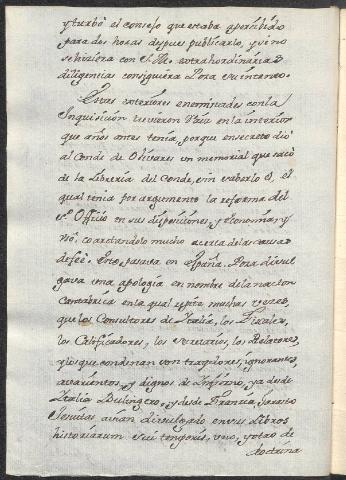 y turbó el consejo que estaba apercibido
para dos horas despues publicarlo, y si no
se hiziera con S. M. extrahordinarias
diligencias consiguiera Poza su intento.
Estas exteriores enemistades con la
Inquisición tuvieron raiz en la interior
que años antes tenía, porque en secreto dió
al Conde de Olivares un memorial que sacó
de la Librería del Conde, sin saberlo él, el
qual tenia por argumento la reforma del
S.to Officio en sus disposiciones, y economia, y
uso, coartandolo mucho acerca de las causas
de feé. Esto pasava en España. Poza divul
gava una apología en nombre de la nacion
Cantabrica en la qual repite muchas vezes,
que los Consultores de Italia, los Fiscales,
los Calificadores, los Secretarios, los Relatores,
y los que condenan son tragadores, ignorantes,
avarientos, y dignos de Infierno, ya desde
Italia Bulingero, y desde Francia,
Jesuitas avian divulgado en sus Libros
historiarum sui temporis, uno, y otro de
doctrina